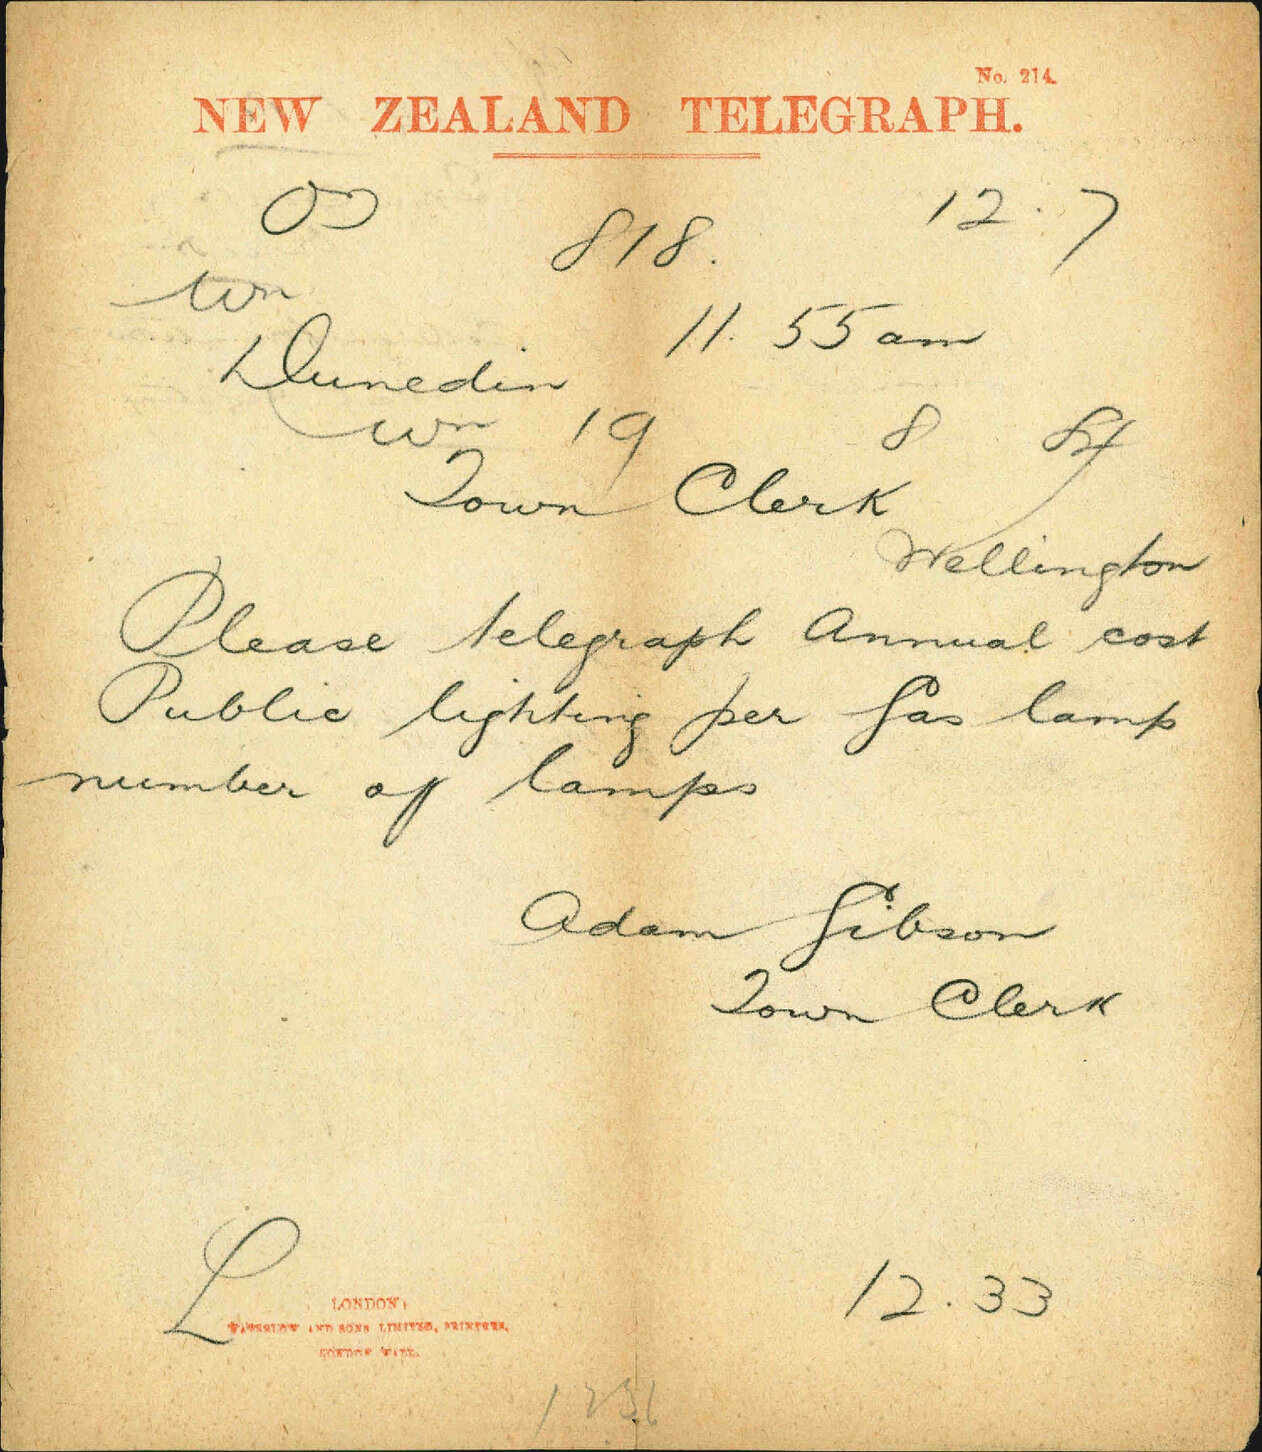 No. 214.
NEW ZEALAND TELEGRAPH.
818. 12.7
wn
11.55 am
Dunedin
wn 19 8
Town Clerk
Wellington
Please telegraph Annual cost
Public lighting per Gas lamp
number of lamps
Adam Gibson
Town Clerk
L 12.33
LONDON:
WATERLOW AND SONS LIMITED, PRINTERS,
LONDON WALL.